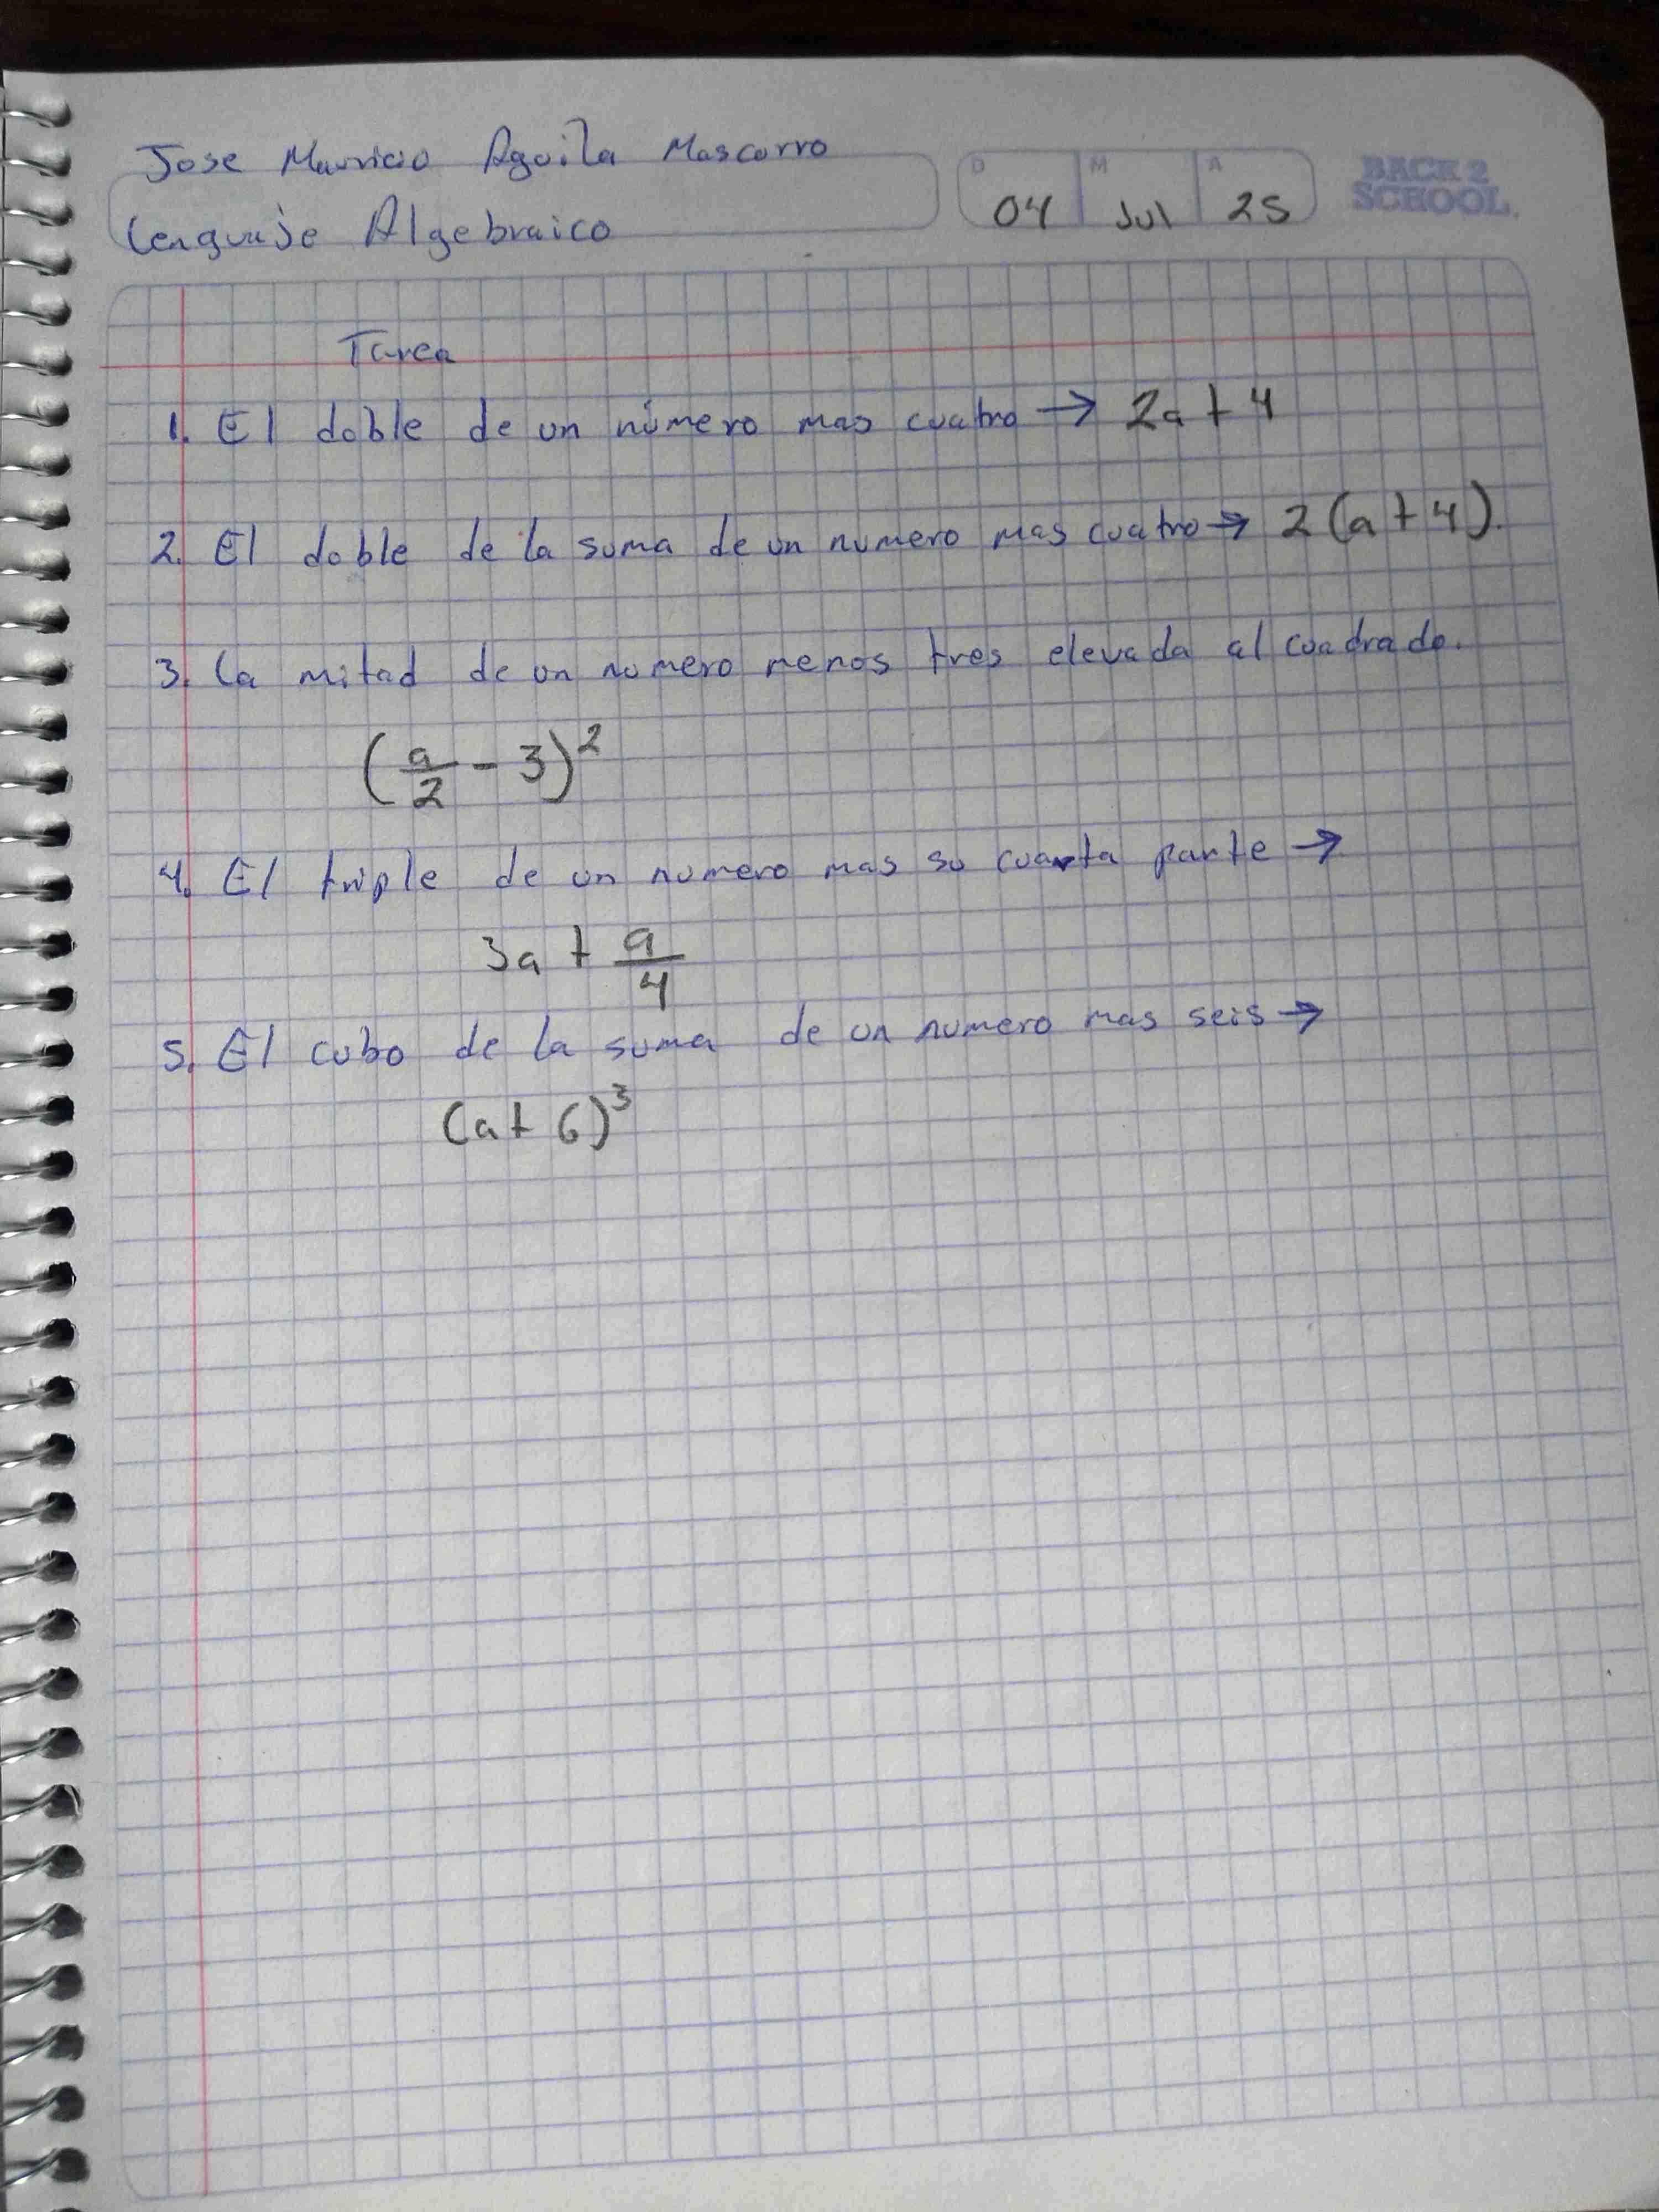 Jose Mauricio Aguila Mascorro
D M A
04 Jul 25
BACK 2
SCHOOL
Lenguaje Algebraico
Tarea
1. El doble de un número mas cuatro → 2a + 4
2. El doble de la suma de un numero mas cuatro → 2(a + 4).
3. La mitad de un numero menos tres elevada al cuadrado.
(a/2 - 3)²
4. El triple de un numero mas su cuarta parte →
3a + a/4
5. El cubo de la suma de un numero mas seis →
(a + 6)³